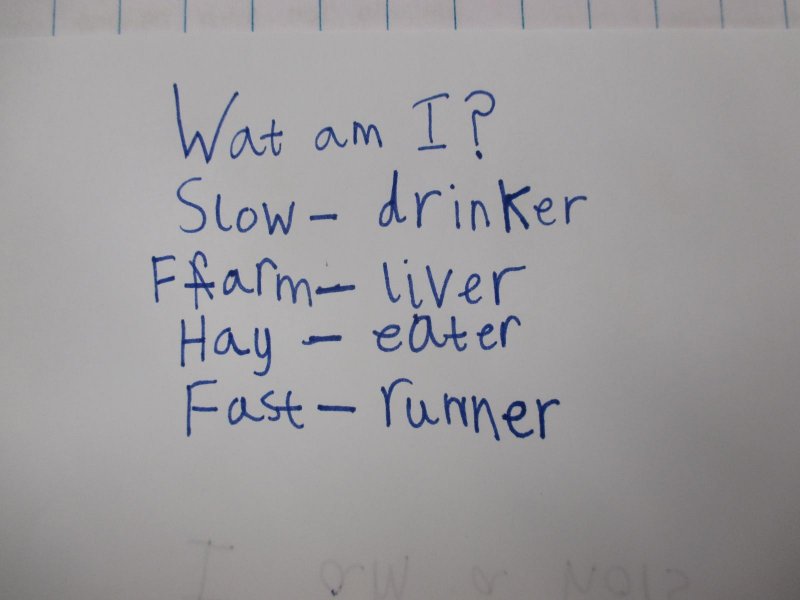 Wat am I?
Slow - drinker
Ffarm - liver
Hay - eater
Fast - runner